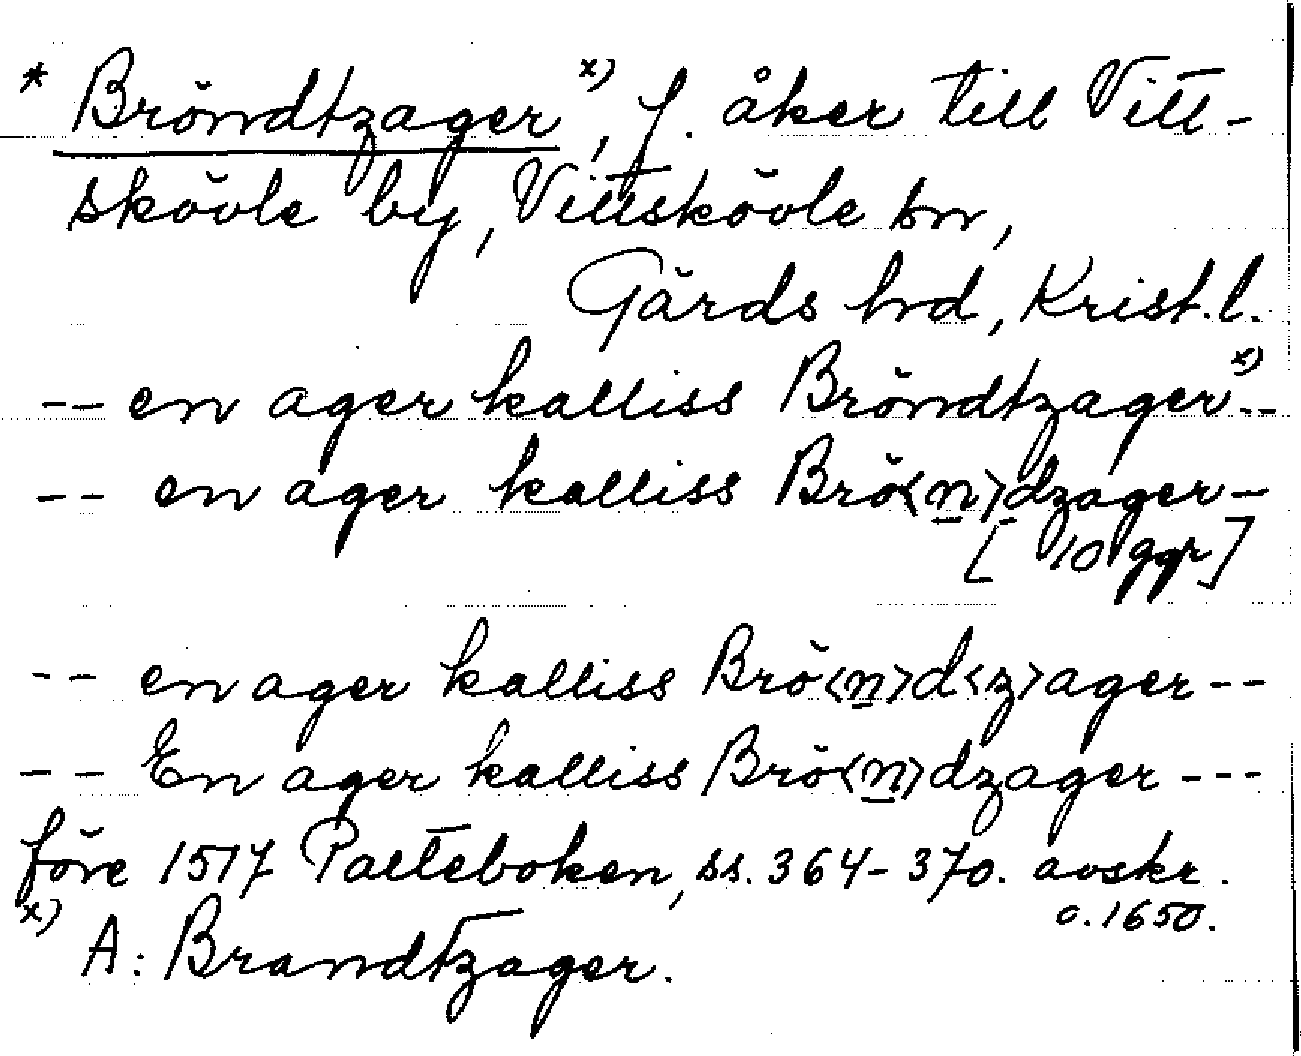 * Bröndtzager x), f. åker till Vitt-
skövle by, Vittskövle sn,
Gärds hd, Krist. l.
-- en ager kalliss Bröndtzager x) --
-- en ager kalliss Brö<n>dzager --
[10 ggr]
-- en ager kalliss Brö<n>d<z>ager --
-- En ager kalliss Brö<n>dzager ---
före 1517 Palteboken, ss. 364-370. avskr.
c. 1650.
x) A: Brandtzager.